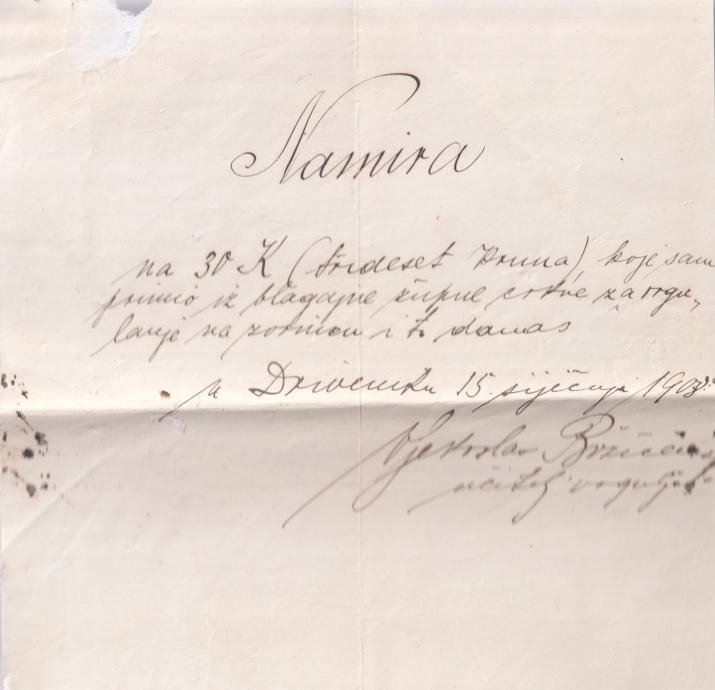 Namira
na 30 K (trideset kruna) koje sam
primio iz blagajne župne crkve za orgu„
lanje na zornicu i to danas
u Driveniku 15. siječnja 1903.
Vjekoslav
učitelj orguljaš